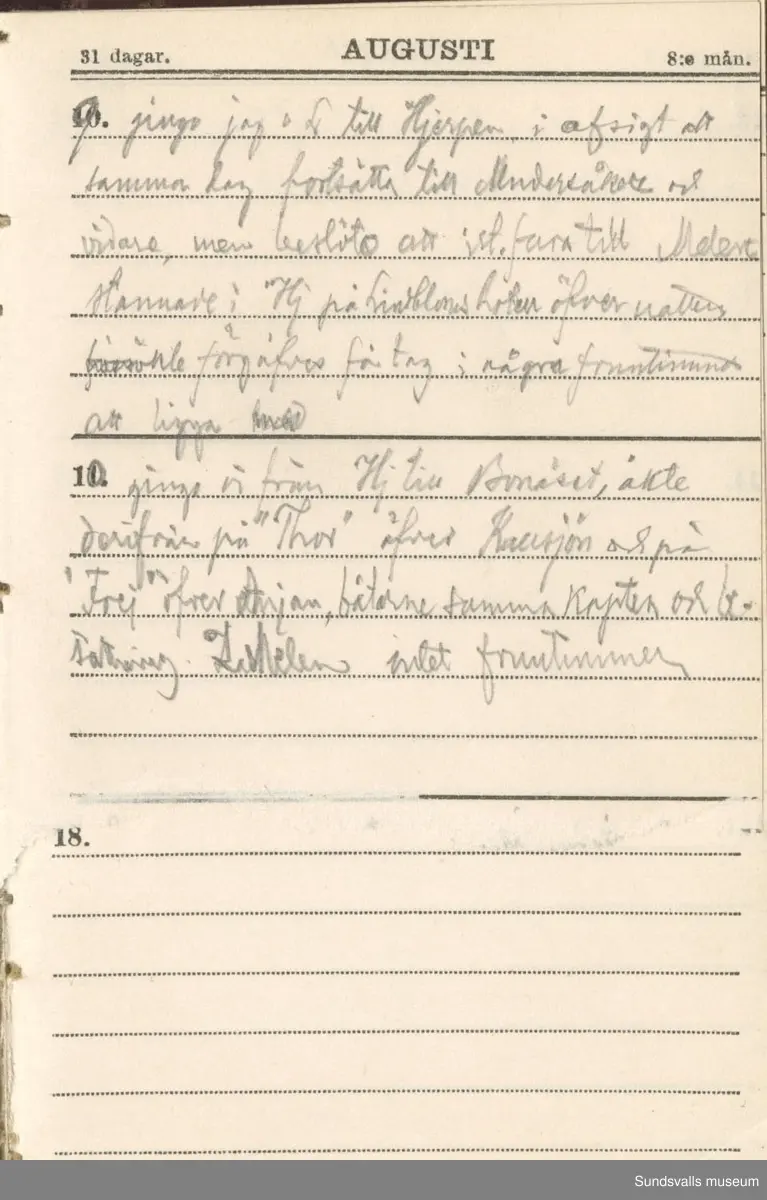 31 dagar. AUGUSTI 8:e mån.
9. gingo jag o L till Hjerpen, i afsigt att
samma dag fortsätta till Undersåker och
vidare, men beslöto att ist. fara till
stannade i Hj på Lindbloms hotell öfver natten
försökte förgäfves få tag i några fruntimmer
att ligga med
10. gingo vi från Hj till Bonäset, åkte
derifrån på "Thor" öfver Kallsjön och på
"Frej" öfver Anjan, båtarne samma kapten och be-
sättning. intet fruntimmer
18.
Sundsvalls museum